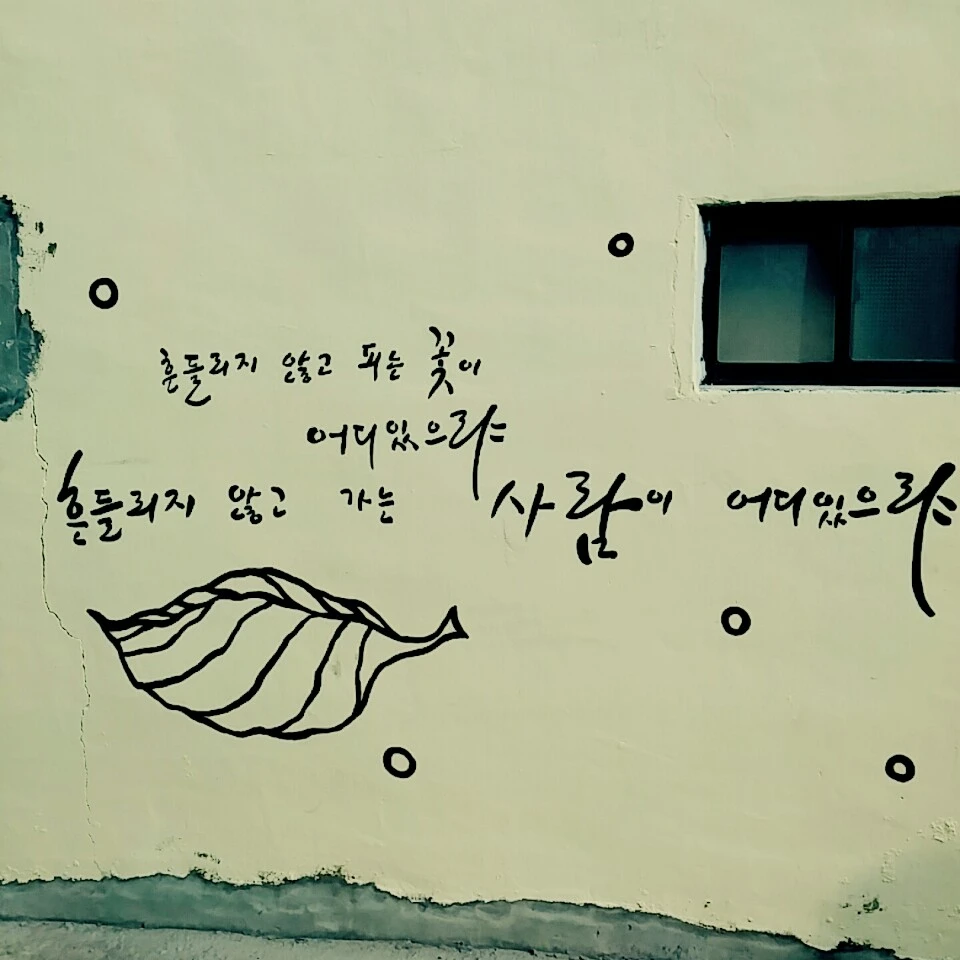 흔들리지 않고 피는 꽃이
어디있으랴
흔들리지 않고 가는 사람이 어디있으랴